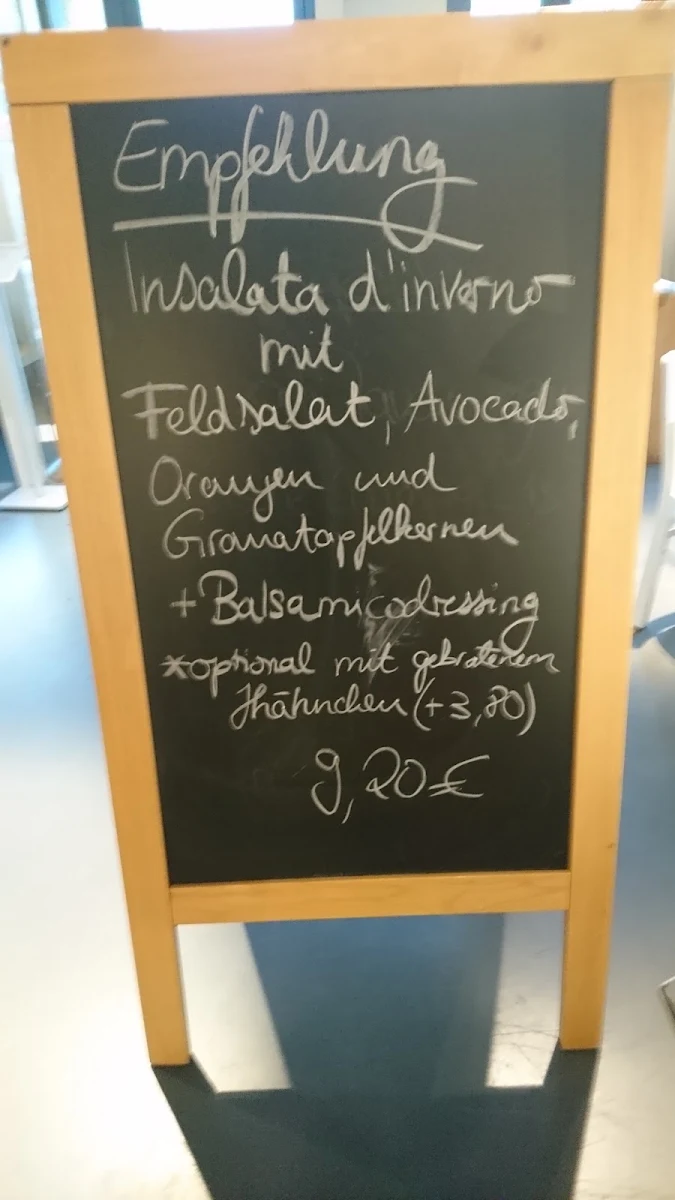 Empfehlung
Insalata d'inverno
mit
Feldsalat, Avocado,
Orangen und
Granatapfelkernen
+ Balsamicodressing
*optional mit gebratenem
Hähnchen (+3,80)
9,20€